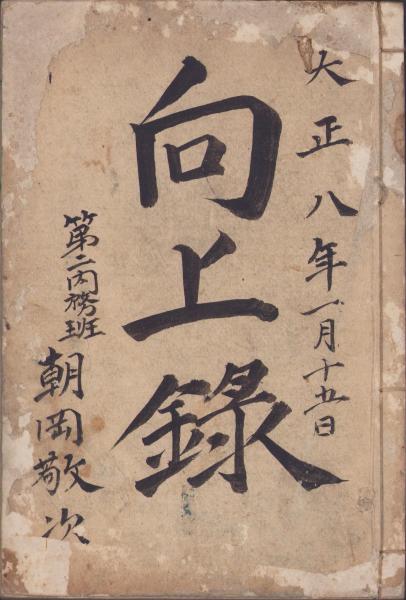 大正八年一月十五日
向上錄
第二内務班
朝岡敬次